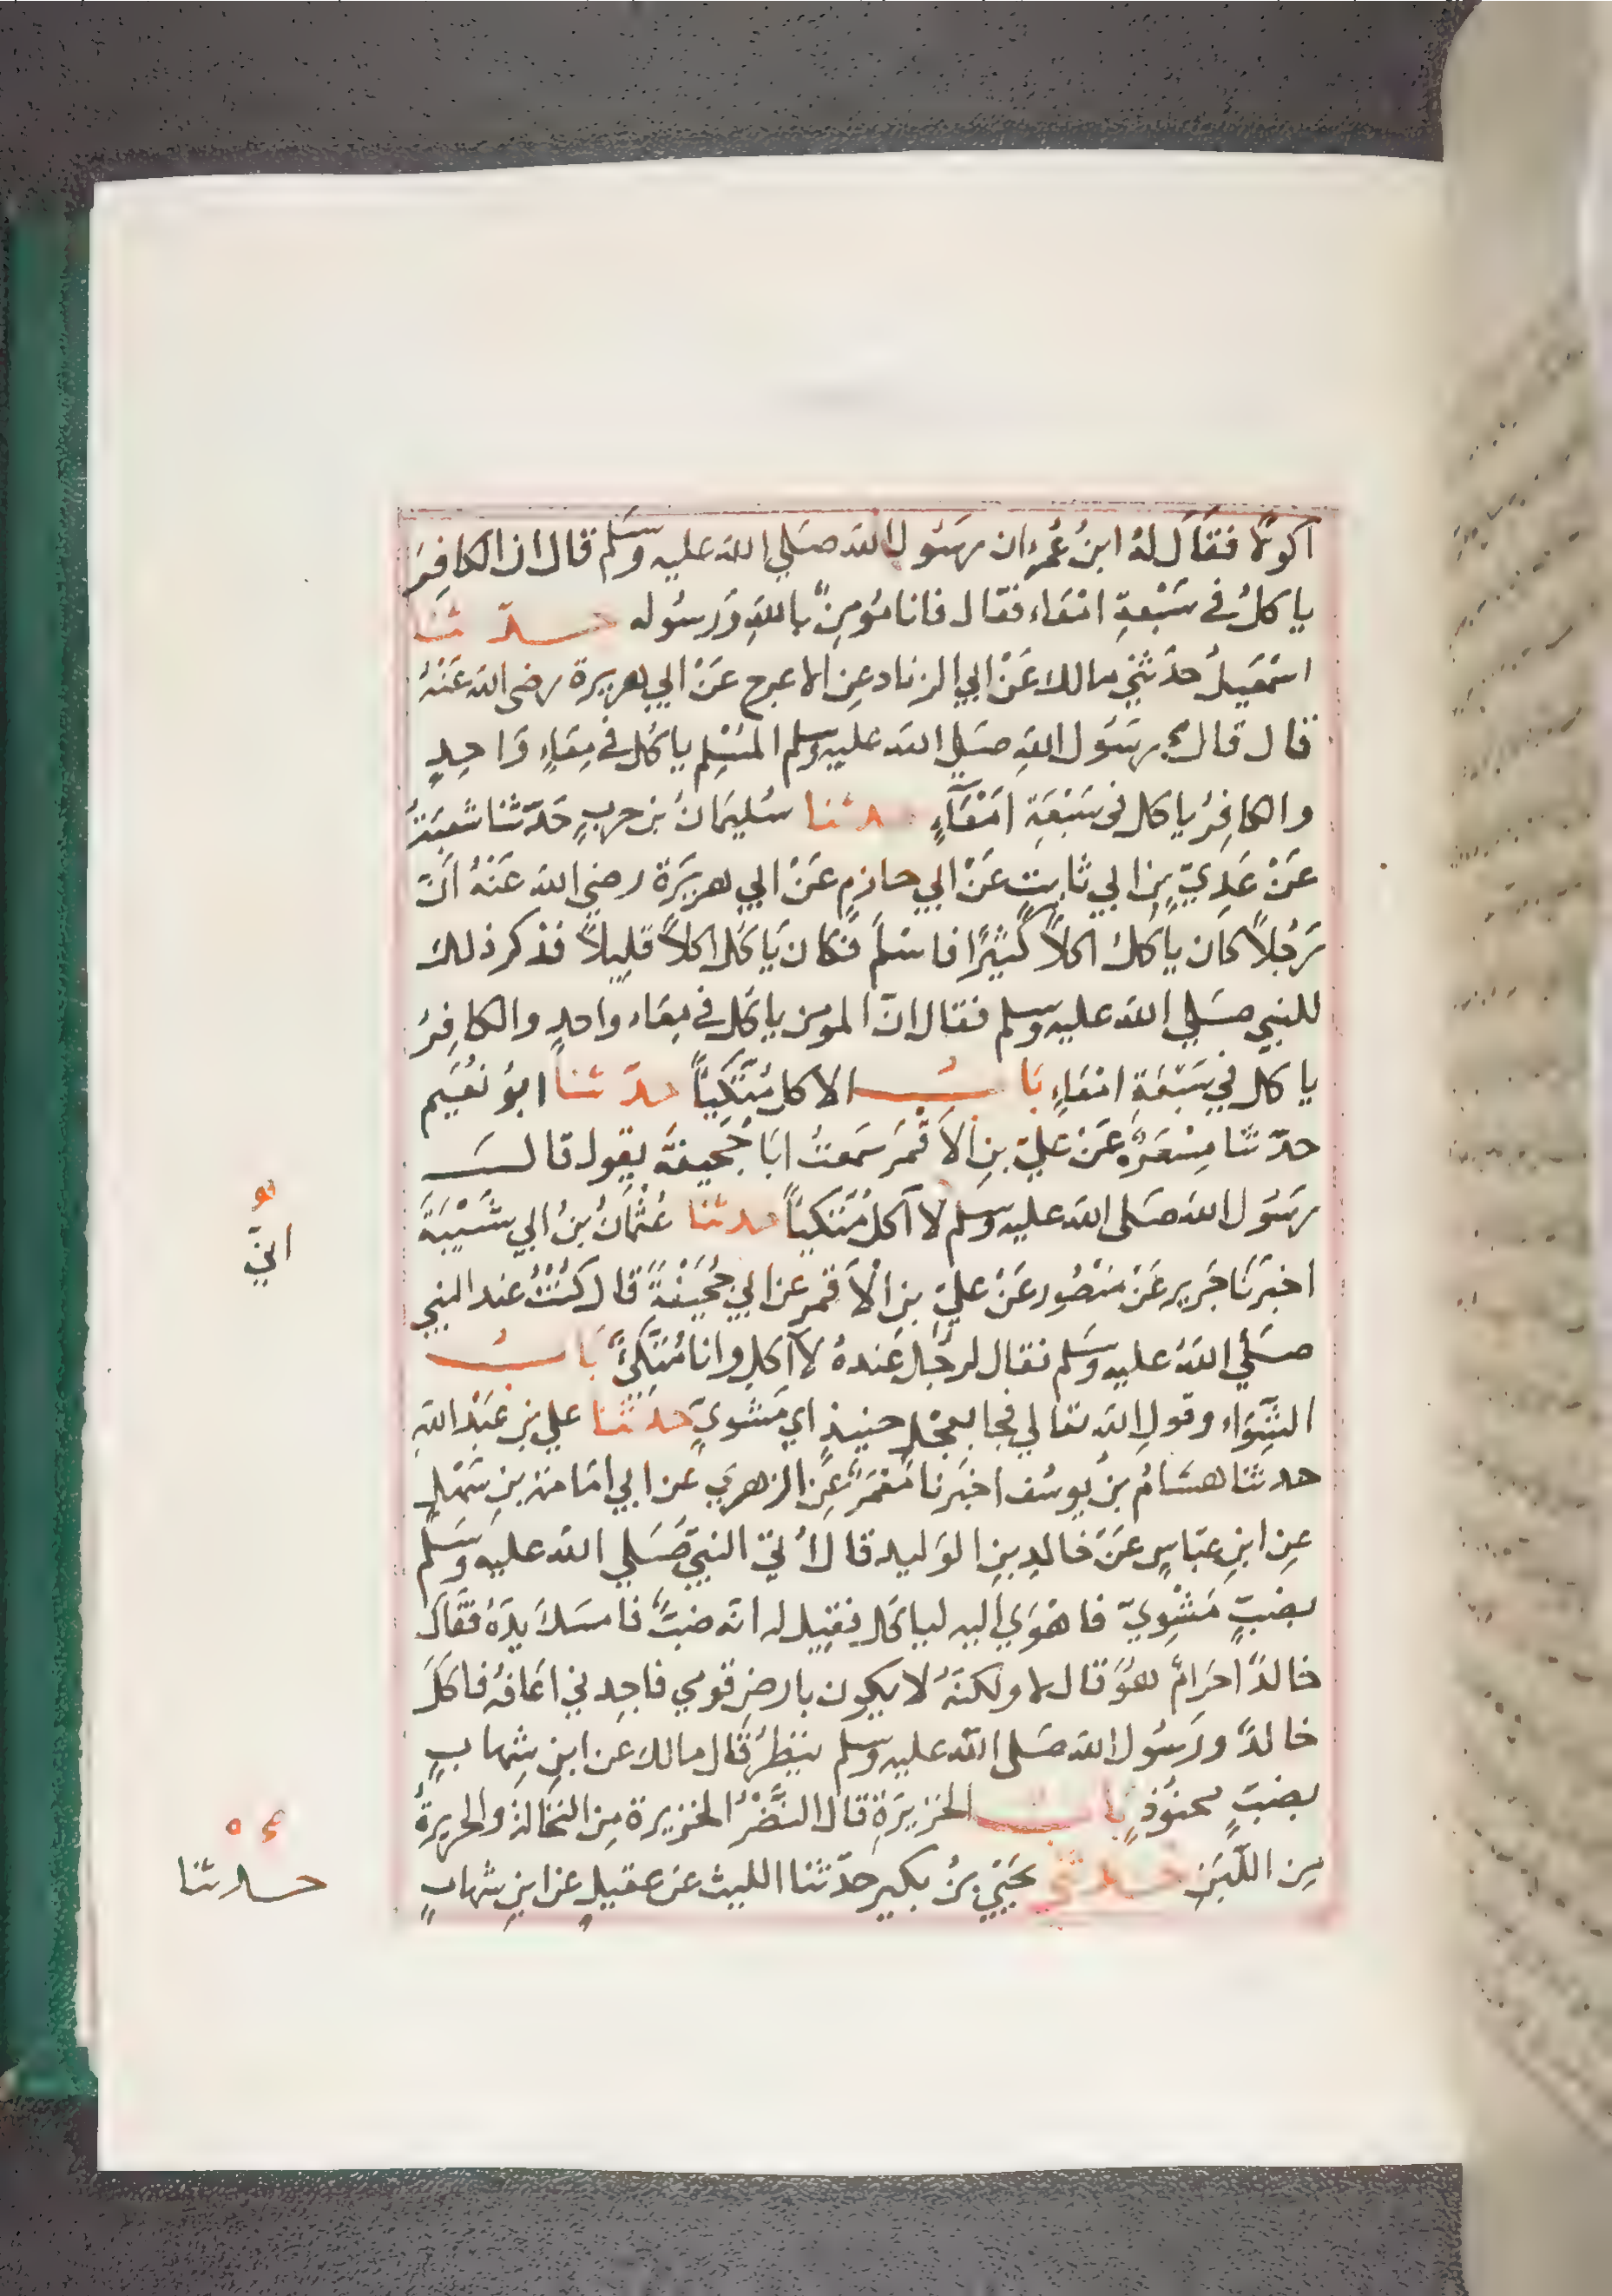 اكولاً فقَالَ لهُ ابنُ عُمر ان رسَوُل الله صَلي الله عليه وسَلم قال ان الكافِرَ
ياكلُ في سَبْعةِ امْعَاء فقال فانا مُومِنٌ باللهِ وَرسُوله حدّثنا
اسْمٰعيلُ حدّثني مالك عَنْ ابي الزناد عِن الاعرج عَنْ ابي هريرة رضى الله عَنْهُ
قال قال رسَوُل اللهِ صَلي الله عليه وسلم المسْلِم ياكُل في مِعَاءٍ وَاحِدٍ
والكافِرُ ياكل فى سَبْعَةِ امْعَآءٍ حدثنا سُليمَانُ بْن حربٍ حَدّثنا شعبَةُ
عَنْ عَدِيّ بنِ ابي ثابتٍ عَنْ ابي حازمٍ عَنْ ابي هريرَة رضي الله عَنْهُ انّ
رَجُلاً كان ياكُل اكلاً كَثيْرًا فاسْلَم فكانَ ياكُل اكلاً قلِيلاً فذكر ذلك
للنبي صَلي الله عليه وسلم فقال انّ المومن ياكُل في مِعَاء واحدٍ والكافِرُ
ياكل في سَبْعَةِ امْعَاءٍ بَابُ الاكل مُتّكِياً حدّثنا ابوُ نُعَيم
حدّثنا مِسْعَرٌ عَنْ عليّ بنِ الاَقْمَر سَمعتُ ابَا جُحَيفةَ يقول قال
رسَوُل الله صَلى الله عليه وسلم لا آكل مُتّكياً حدثنا عُثْمَانُ بنُ ابي شَيْبَةَ
اخبَرَنَا جَرير عَنْ مَنْصُور عَنْ عليّ بنِ الْاَقمر عن ابي جُحَيْفَةَ قال كنْتُ عند النبي
صَلي اللهُ عليه وسَلم فقال لرجُل عَندهُ لا آكل وانا مُتّكئٌ بَابُ
الشِّوَاء وقولِ الله تعَالي فجا بعجْلٍ حنيذٍ اي مَشْويٍّ حدثنا علي بن عَبْدِ اللهِ
حدثنا هشامُ بنُ يوسُف اخبَرنا مَعْمَرٌ عِن الزهري عن ابي امَامَة بنِ سَهْلٍ
عِن ابنِ عبّاسٍ عَنْ خالدِ بنِ الوَليد قال اُتيَ النبيُّ صَلي الله عليه وسَلم
بضبٍّ مَشْوِيّ فاهْوَي اليه لياكل فقيل له انّه ضبٌّ فامسَكَ يَدَهُ فقَال
خالدٌ احَرَامٌ هوَ قال لا ولكنّهُ لا يكون بارضِ قومي فاجِدني اعَافهُ فاكَلَ
خالدٌ ورَسُول الله صَلى الله عليه وسلم ينظرُ قال مالك عن ابنِ شِهابٍ
بضبٍّ محنوُذٍ بابُ الخزيرَةِ قال النَّضْرُ الخزيرة مِن النخالة والحريرةُ
مِن اللّبَنِ حدثني يَحْييَ بنُ بكير حدّثنا الليث عَن عقيلٍ عن ابنِ شهابٍ
انيّ
حدثنا